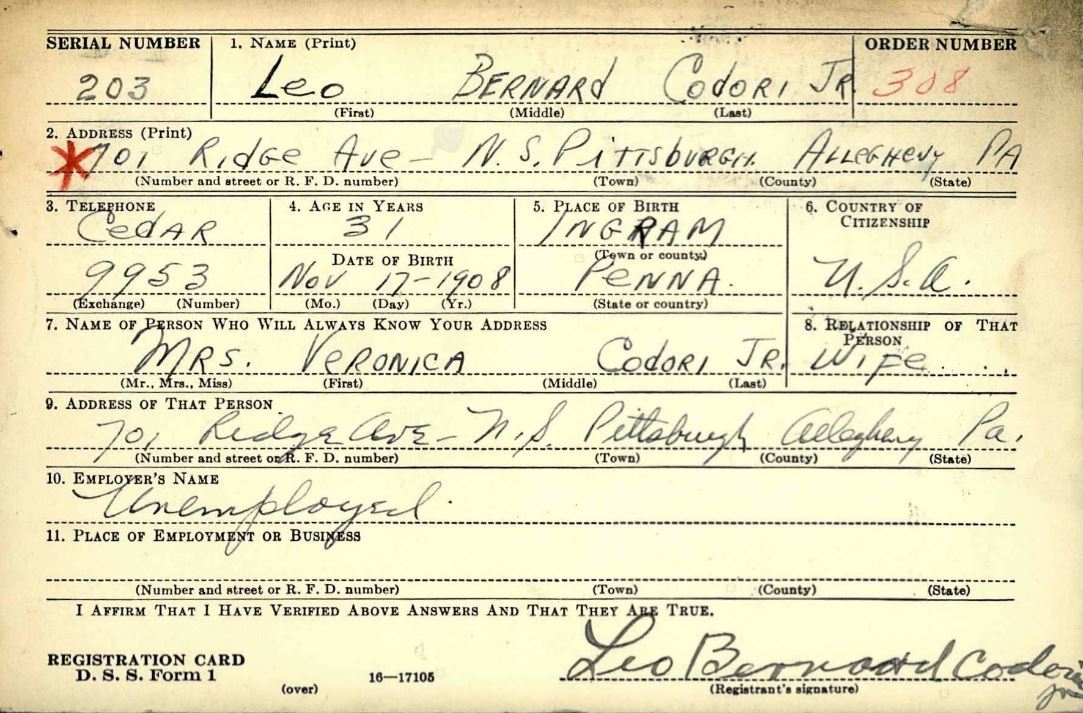 SERIAL NUMBER 1. NAME (Print) ORDER NUMBER
203 LEO BERNARD CODORI JR. 308
(First) (Middle) (Last)
2. ADDRESS (Print)
701 RIDGE AVE – N.S. PITTSBURGH. ALLEGHENY PA
(Number and street or R. F. D. number) (Town) (County) (State)
3. TELEPHONE 4. AGE IN YEARS 5. PLACE OF BIRTH 6. COUNTRY OF CITIZENSHIP
CEDAR 31 INGRAM
DATE OF BIRTH (Town or county)
9953 NOV 17-1908 PENNA. U.S.A.
(Exchange) (Number) (Mo.) (Day) (Yr.) (State or country)
7. NAME OF PERSON WHO WILL ALWAYS KNOW YOUR ADDRESS 8. RELATIONSHIP OF THAT PERSON
MRS. VERONICA CODORI JR. WIFE
(Mr., Mrs., Miss) (First) (Middle) (Last)
9. ADDRESS OF THAT PERSON
701 Ridge Ave – N.S. Pittsburgh Allegheny Pa.
(Number and street or R. F. D. number) (Town) (County) (State)
10. EMPLOYER'S NAME
Unemployed.
11. PLACE OF EMPLOYMENT OR BUSINESS
(Number and street or R. F. D. number) (Town) (County) (State)
I AFFIRM THAT I HAVE VERIFIED ABOVE ANSWERS AND THAT THEY ARE TRUE.
REGISTRATION CARD Leo Bernard Codori Jr
D. S. S. Form 1 16—17105
(over) (Registrant's signature)